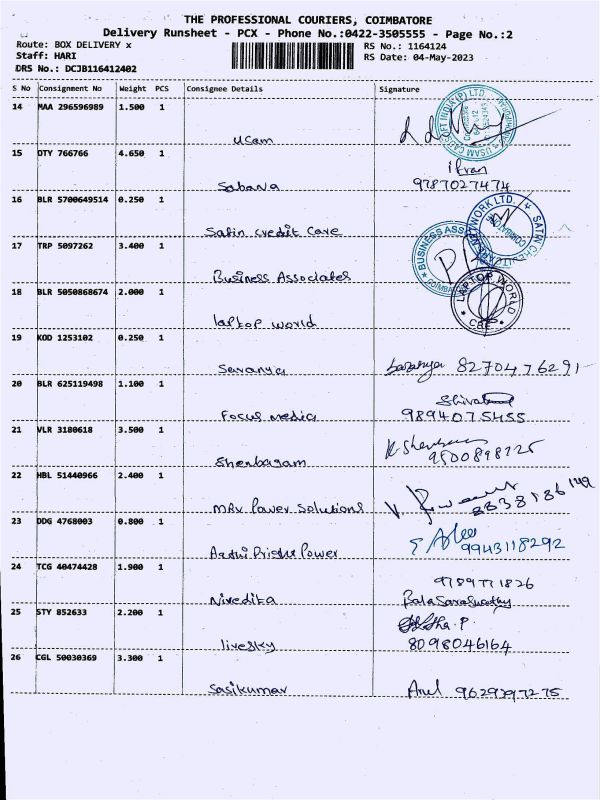 THE PROFESSIONAL COURIERS, COIMBATORE
Delivery Runsheet - PCX - Phone No.:0422-3505555 - Page No.:2
Route: BOX DELIVERY x RS No.: 1164124
Staff: HARI RS Date: 04-May-2023
DRS No.: DCJB116412402
S No Consignment No Weight PCS Consignee Details Signature
14 MAA 296596989 1.500 1
Usam
15 OTY 766766 4.650 1 Ifran
Sabana 9787027474
16 BLR 5700649514 0.250 1
Satin credit Care
17 TRP 5097262 3.400 1 BUSINESS
Business Associates
18 BLR 5050868674 2.000 1 LAPTOP WORLD
laptop world CBE
19 KOD 1253102 0.250 1
Saranya Saranya 8270476291
20 BLR 625119498 1.100 1
Focus media 9894075455
21 VLR 3180618 3.500 1
Shenbagam
22 HBL 51440966 2.400 1
Power Solutions
23 DDG 4768003 0.800 1
Power 9943118292
24 TCG 40474428 1.900 1
Nivedita BalaSaraswathy
25 STY 852633 2.200 1
livesky 8098046164
26 CGL 50030369 3.300 1
Sasikumar Arul